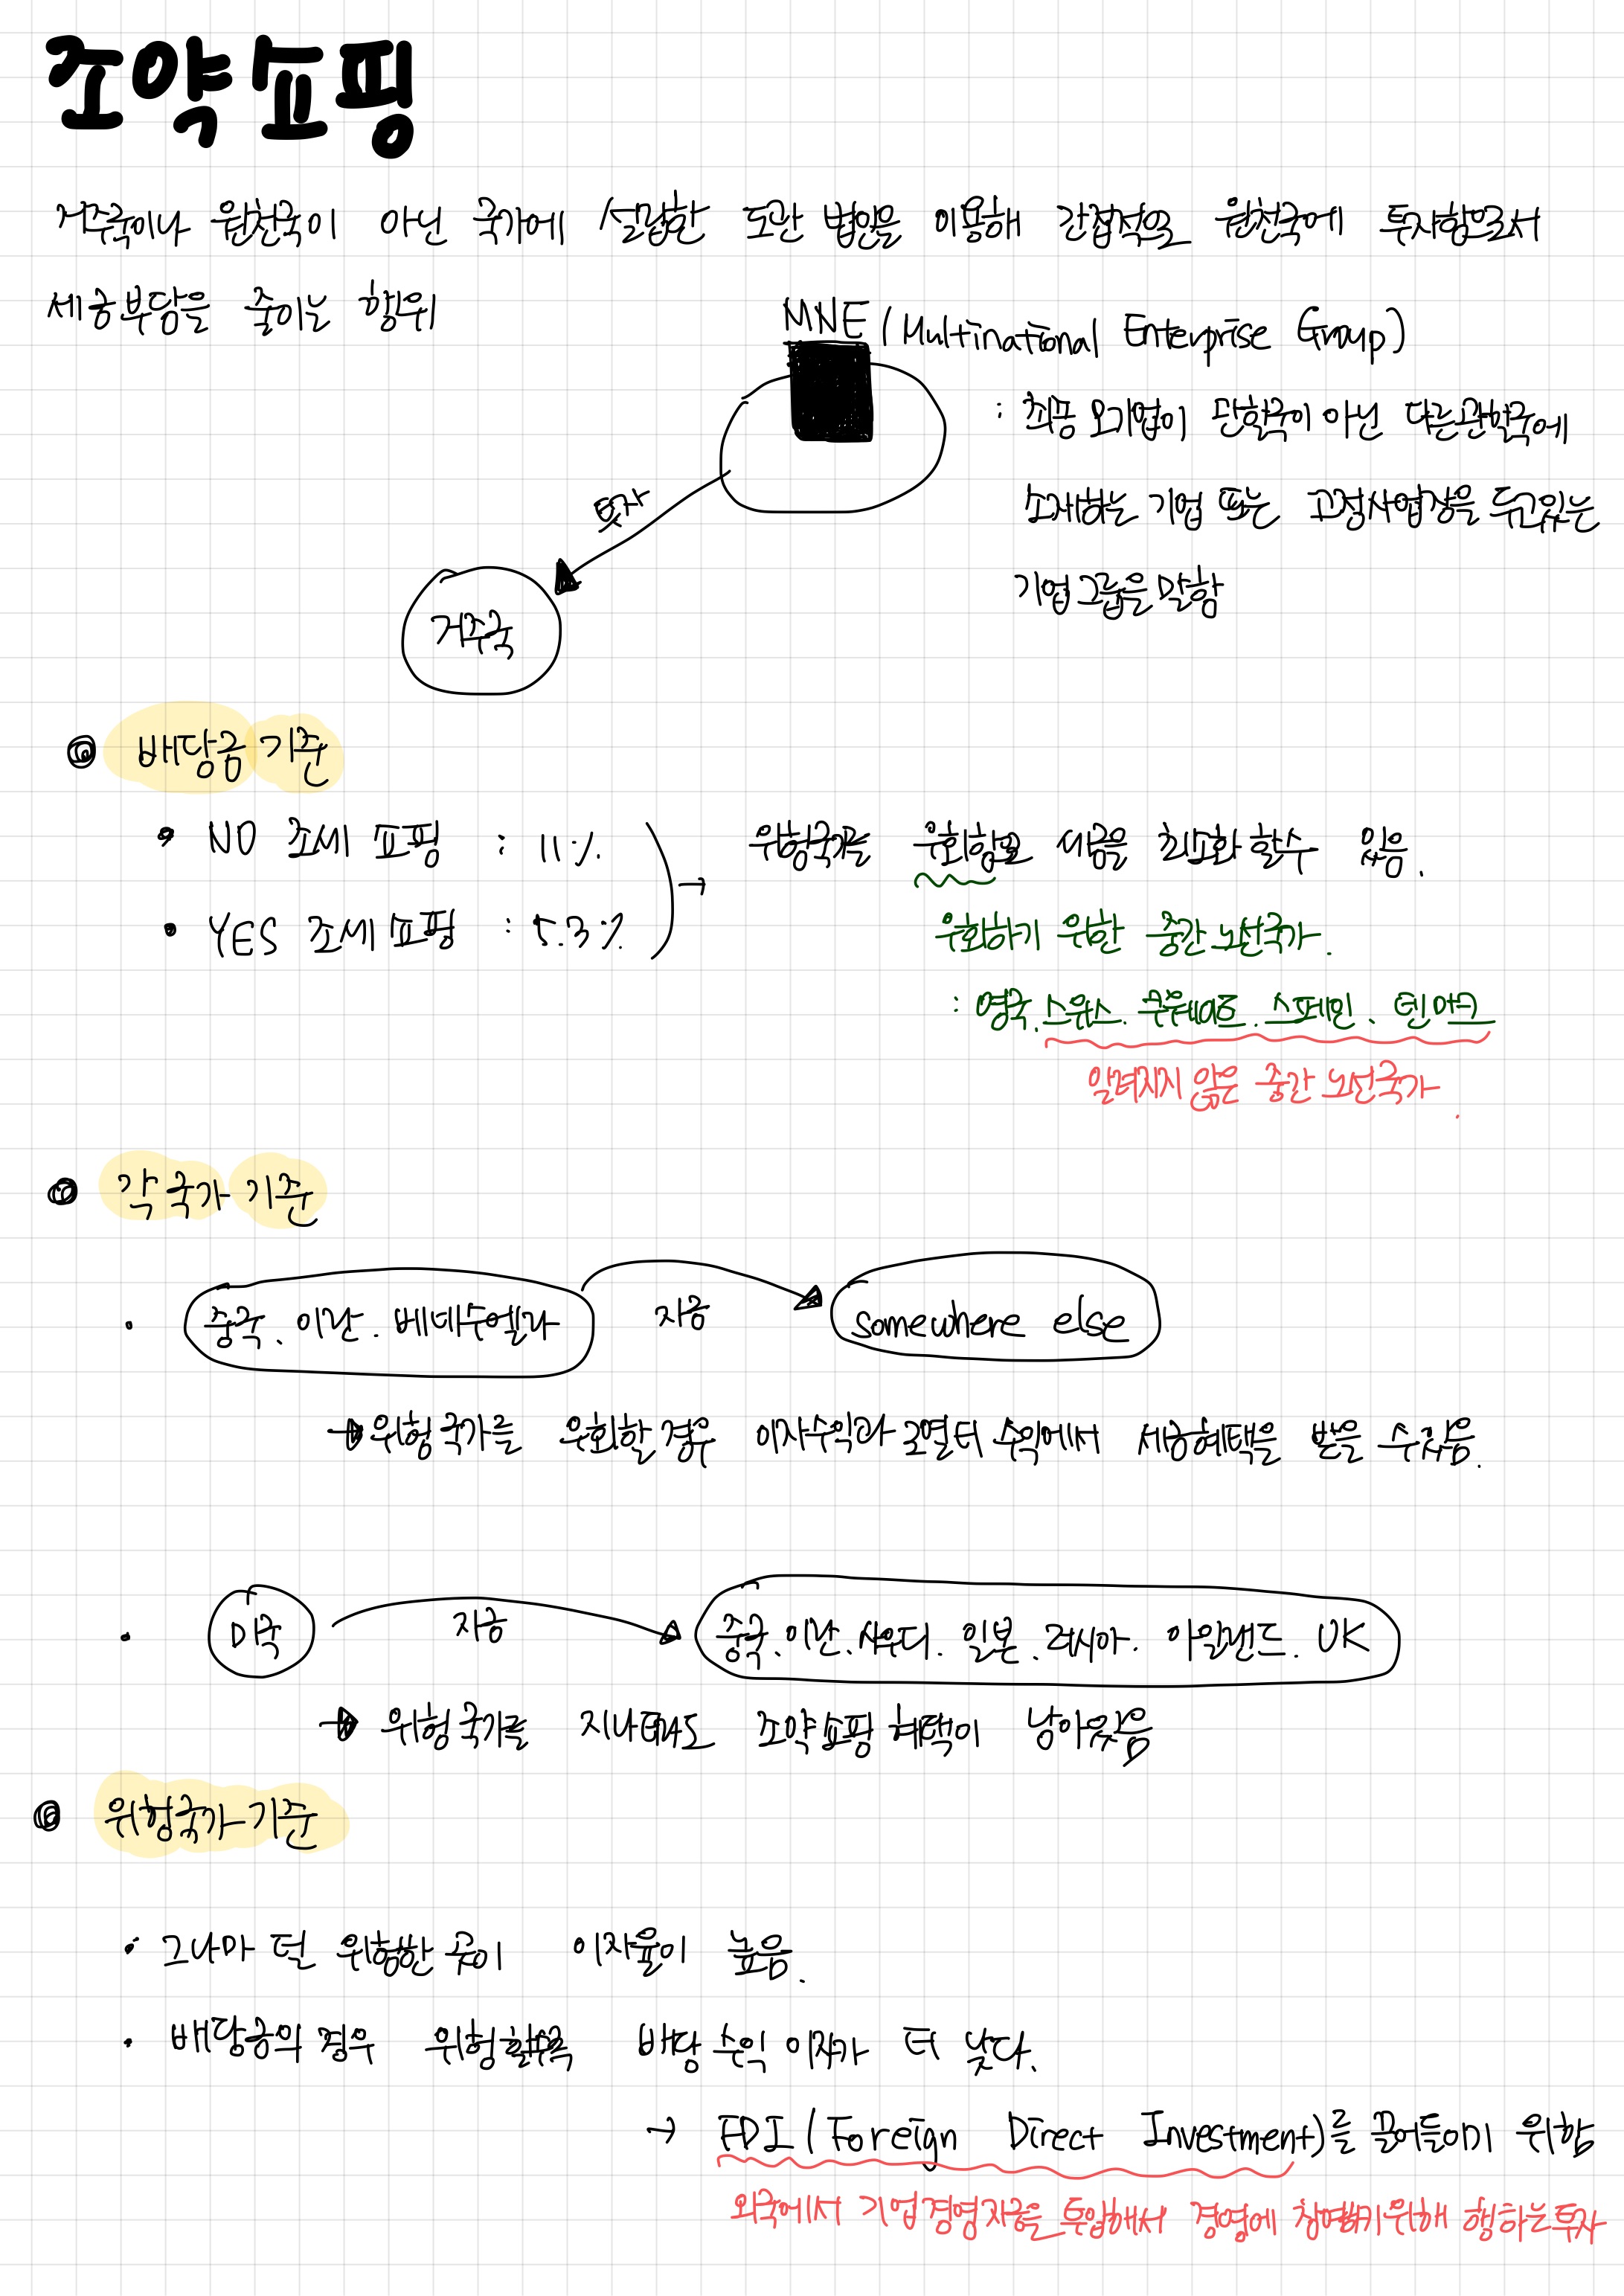 조약쇼핑
거주국이나 원천국이 아닌 국가에 설립한 도관 법인을 이용해 간접적으로 원천국에 투자함으로서
세금부담을 줄이는 행위
MNE (Multinational Enterprise Group)
: 최종 모기업이 관할국이 아닌 다른관할국에
소재하는 기업 또는 고정사업장을 두고있는
기업그룹을 말함
투자
거주국
배당금 기준
• NO 조세 쇼핑 : 11%
• YES 조세쇼핑 : 5.3%
→ 위험국가를 우회함으로 세금을 최소화 할수 있음.
우회하기 위한 중간노선국가.
: 영국. 스위스. 쿠웨이트. 스페인. 덴마크
알려지지 않은 중간 노선국가.
각 국가 기준
• 중국. 이란. 베네수엘라 자금 somewhere else
→ 위험국가를 우회할경우 이자수익과 로열티 수익에서 세금혜택을 받을 수있음.
• 미국 자금 중국. 이란. 사우디. 일본. 러시아. 아일랜드. UK
→ 위험국가를 지나더라도 조약쇼핑 혜택이 남아있음
위험국가 기준
• 그나마 덜 위험한 곳이 이자율이 높음.
• 배당금의 경우 위험할수록 배당수익 이자가 더 낮다.
→ FDI (Foreign Direct Investment)를 끌어들이기 위함
외국에서 기업경영자금을 투입해서 경영에 참여하기위해 행하는투자